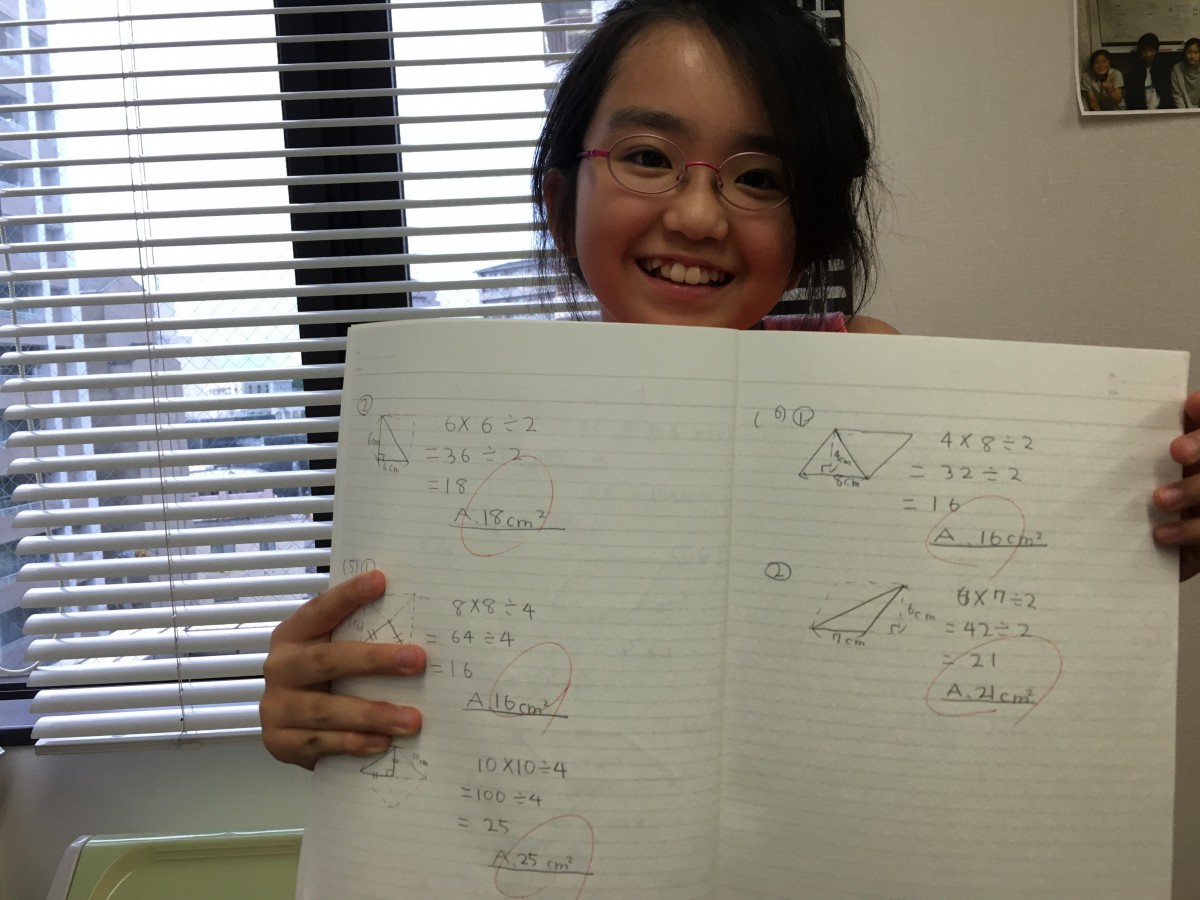 ②
6cm
6cm
6×6÷2
=36÷2
=18
A.18cm²
(5)①
8×8÷4
=64÷4
=16
A.16cm²
10cm
10×10÷4
=100÷4
=25
A.25cm²
(6)①
4cm
8cm
4×8÷2
=32÷2
=16
A.16cm²
②
6cm
7cm
6×7÷2
=42÷2
=21
A.21cm²